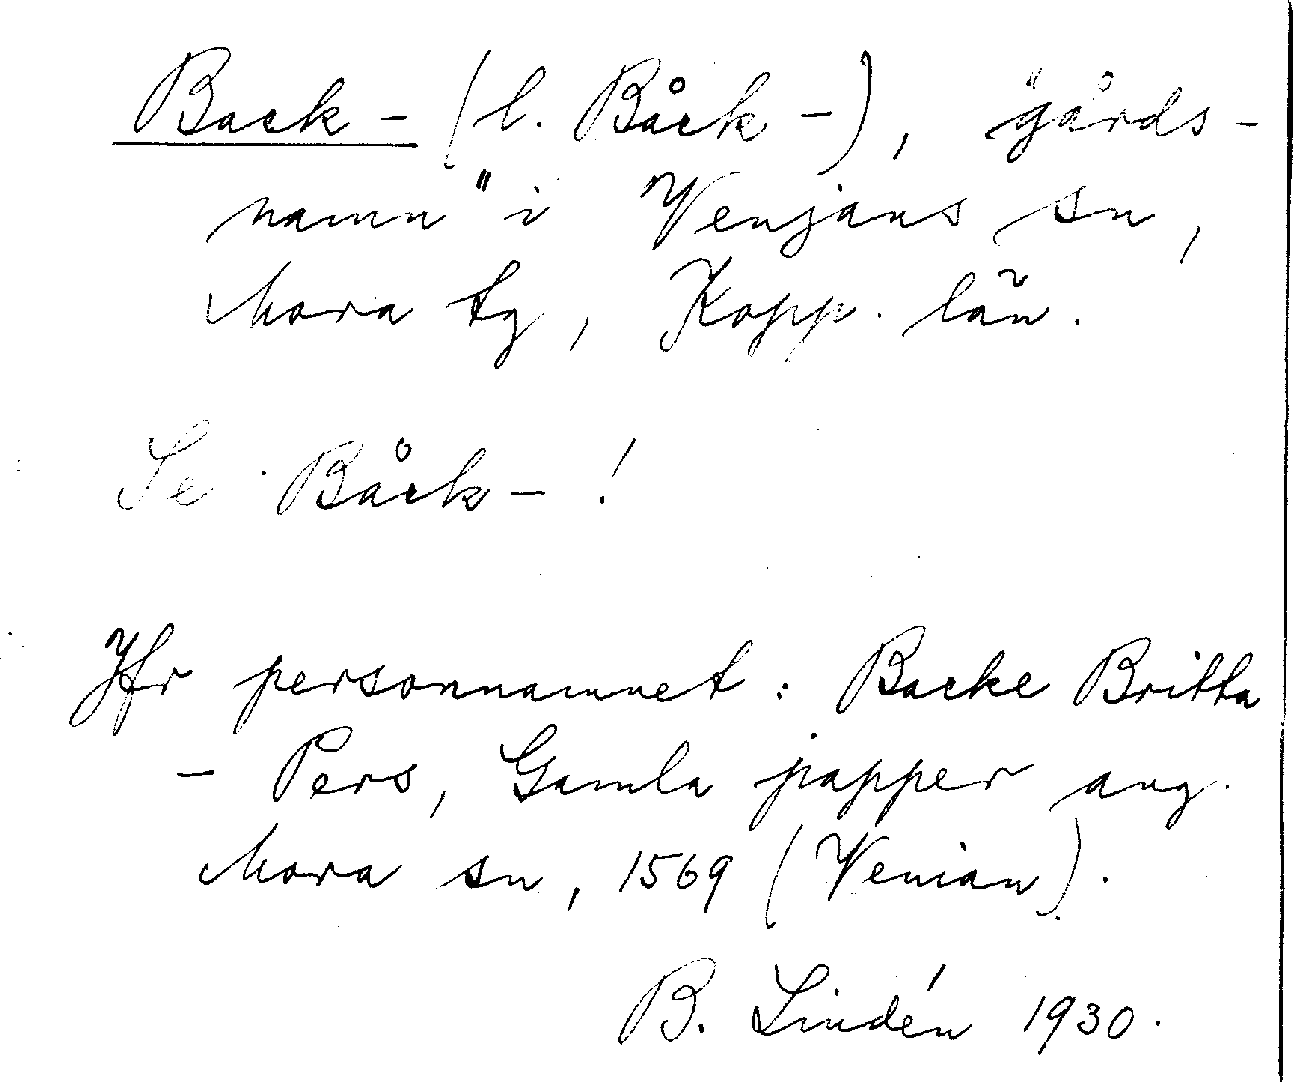 Back- (l. Båck-), "gårds-
namn" i Venjans sn,
Mora tg, Kopp. län.
Se Båck-!
Jfr personnamnet: Backe Britta
- Pers, Gamla papper ang.
Mora sn, 1569 (Venian).
B. Lindén 1930.